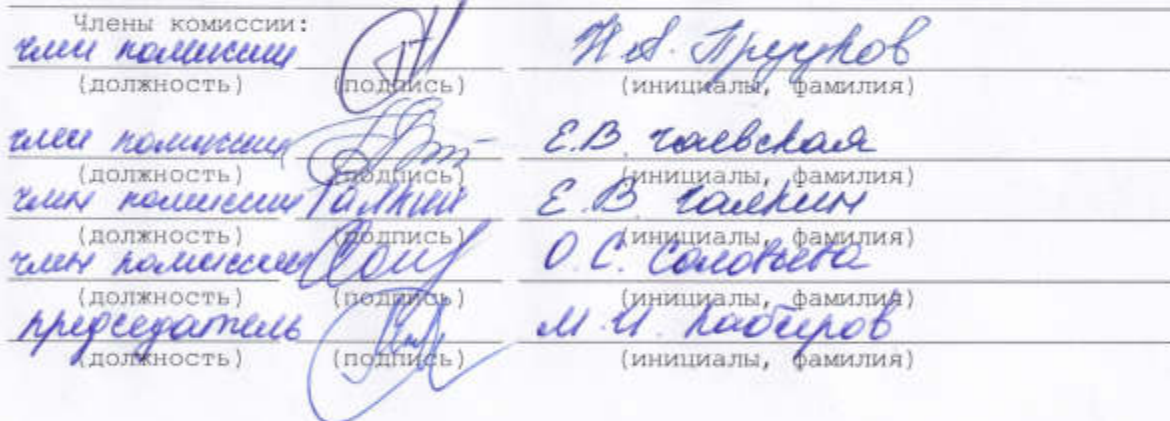 Члены комиссии:
член комиссии Н.А. Пруцков
(должность) (подпись) (инициалы, фамилия)
член комиссии Е.В. Гаевская
(должность) (подпись) (инициалы, фамилия)
член комиссии Галкин Е.В. Галкин
(должность) (подпись) (инициалы, фамилия)
член комиссии О.С. Соловьева
(должность) (подпись) (инициалы, фамилия)
председатель М.И. Кабиров
(должность) (подпись) (инициалы, фамилия)